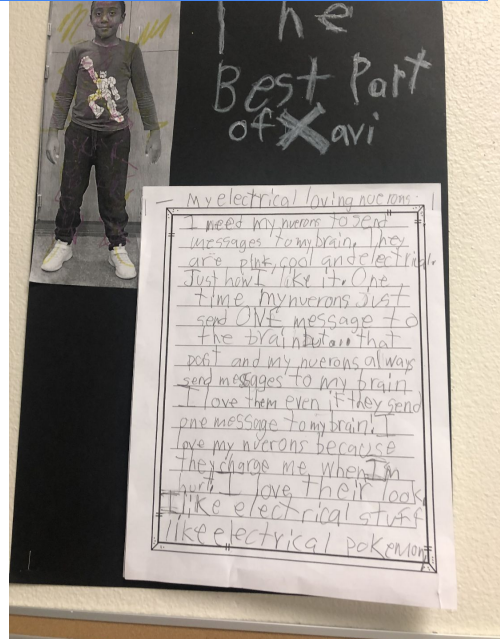 The
Best Part
of Xavi
My electrical loving nuerons.
I need my nuerons to send
messages to my brain. They
are pink, cool and electrical.
Just how I like it. One
time my nuerons Just
send ONE message to
the brain but... that
past and my nuerons always
send messages to my brain
I love them even if they send
one message to my brain. I
love my nuerons because
they charge me when I'm
hurt. I love their look,
I like electrical stuff
like electrical pokemon